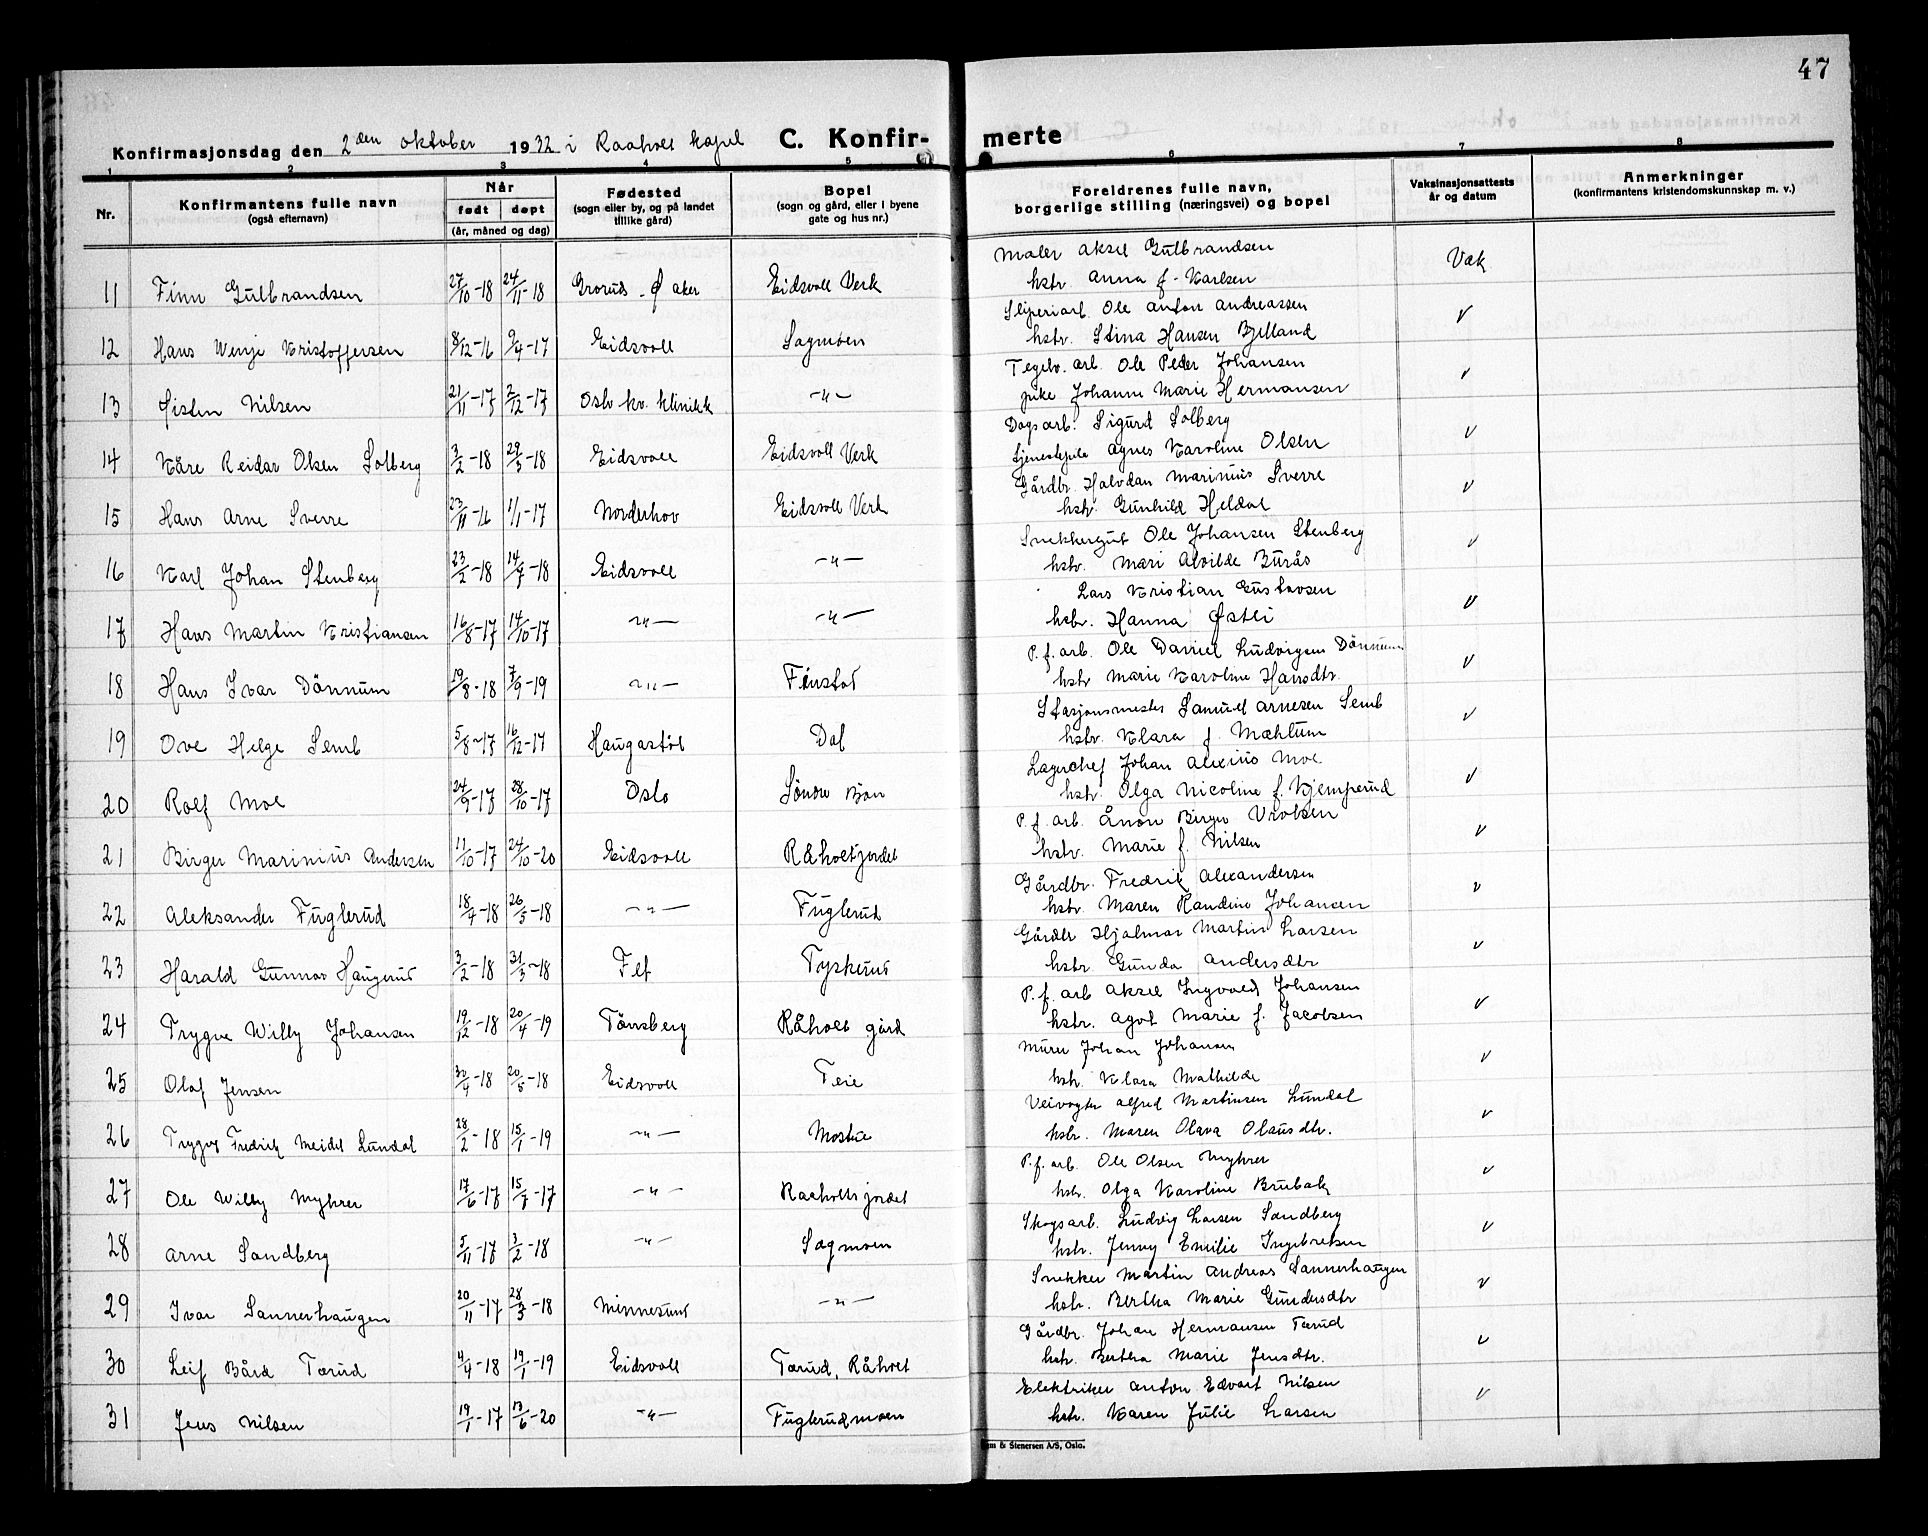 47
Konfirmasjonsdag den 2den oktober 1932 i Raaholt kapel C. Konfir- merte
1 2 3 4 5 6 7 8
Nr. Konfirmantens fulle navn (også efternavn) Når født døpt (år, måned og dag) Fødested (sogn eller by, og på landet tillike gård) Bopel (sogn og gård, eller i byene gate og hus nr.) Foreldrenes fulle navn, borgerlige stilling (næringsvei) og bopel Vaksinasjonsattests år og datum Anmerkninger (konfirmantens kristendomskunnskap m. v.)
11 Finn Gulbrandsen 27/10-18 24/11-18 Grorud - Ø aker Eidsvoll Verk Maler Aksel Gulbrandsen Vak
hstr. Anna f. Karlsen
12 Hans Wenje Kristoffersen 8/12-16 9/4-17 Eidsvoll Sagmoen Sliperiarb. Ole Anton Andreassen v
hstr. Stina Hansen Bjelland
13 Øisten Nilsen 21/11-17 2/12-17 Oslo kv. klinikk -"- Tegelv. arb. Ole Peder Johansen v
pike Johanne Marie Hermansen
14 Kåre Reidar Olsen Solberg 3/2-18 29/3-18 Eidsvoll Eidsvoll Verk Dagsarb. Sigurd Solberg v
tjenestepike Agnes Karoline Olsen
15 Hans Arne Sverre 23/11-16 1/1-17 Norderhov Eidsvoll Verk Gårdbr. Halvdan Marinius Sverre v
hstr. Gunhild Heldal
16 Karl Johan Stenberg 23/2-18 14/7-18 Eidsvoll -"- Snekkergut Ole Johansen Stenberg v
hstr. Mari Alvilde Burås
17 Hans Martin Kristiansen 16/8-17 14/10-17 -"- -"- Lars Kristian Gustavsen v
hstr. Hanna Østli
18 Hans Ivar Dønnum 19/8-18 7/9-19 -"- Finstad P. f. arb. Ole Daniel Ludvigsen Dønnum v
hstr. Marie Karoline Hansdtr.
19 Ove Helge Semb 5/8-17 16/12-17 Haugastøl Dal Stasjonsmester Samuel Arnesen Semb v
hstr. Klara f. Mæhlum
20 Rolf Moe 24/9-17 28/10-17 Oslo Søndre Bjøn Lagerchef Johan Alexius Moe v
hstr. Olga Nicoline f. Kjemperud
21 Birger Marinius Andersen 11/10-17 24/10-20 Eidsvoll Råholtjordet P. f. arb. Ånon Birger Vrolsen v
hstr. Marie f. Nilsen
22 Aleksander Fuglerud 18/4-18 26/5-18 -"- Fuglerud Gårdbr. Fredrik Alexandersen v
hstr. Maren Randine Johansen
23 Harald Gunnar Haugerud 3/2-18 31/3-18 Fet Tyskerud Gårdbr Hjalmar Martin Larsen v
hstr. Gunda Andersdtr
24 Trygve Willy Johansen 19/12-18 20/4-19 Tønsberg Råholt gård P. f. arb Aksel Ingvald Johansen v
hstr. Agot Marie f. Jacobsen
25 Olaf Jensen 30/4-18 20/5-18 Eidsvoll Teie Murer Johan Johansen v
hstr. Klara Mathilde
26 Trygve Fredrik Meidel Lundal 28/2-18 15/1-19 -"- Mostue Veivogter Alfred Martinsen Lundal v
hstr. Maren Olava Olausdtr.
27 Ole Willy Myhrer 17/6-17 15/7-17 -"- Raaholtsjordet P. f. arb. Ole Olsen Myhrer v
hstr. Olga Karoline Brubak
28 Arne Sandberg 5/11-17 3/2-18 -"- Sagmoen Skogsarb. Ludvig Larsen Sandberg v
hstr. Jenny Emilie Ingebretsen
29 Ivar Sannerhaugen 20/11-17 28/3-18 Minnesund -"- Snekker Martin Andreas Sannerhaugen v
hstr. Bertha Marie Gundersdtr
30 Leif Bård Tærud 4/4-18 19/1-19 Eidsvoll Tærud, Råholt Gårdbr. Johan Hermansen Tærud v
hstr. Bertha Marie Jensdtr.
31 Jens Nilsen 19/1-17 13/6-20 -"- Fuglerudmoen Elektriker Anton Edvart Nilsen v
hstr. Karen Julie Larsen
& Stenersen A/S, Oslo.